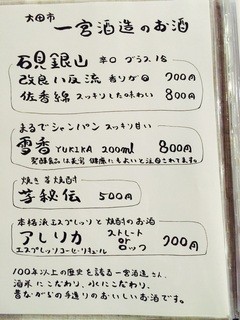 大田市
一宮酒造のお酒
石見銀山 辛口 グラス1合
改良八反流 香り 700円
佐香錦 スッキリした味わい 800円
まるでシャンパン スッキリ甘い
雪香 YUKIKA 200ml 800円
発酵食品は美容 健康にもよいと注目されてます。
焼き芋焼酎
芋秘伝 500円
本格派エスプレッソと焼酎のお酒
アレリカ ストレート 水 ロック 700円
エスプレッソコーヒーリキュール
100年以上の歴史を誇る一宮酒造さん。
酒米にこだわり、水にこだわり、
昔ながらの手造りのおいしいお酒です。